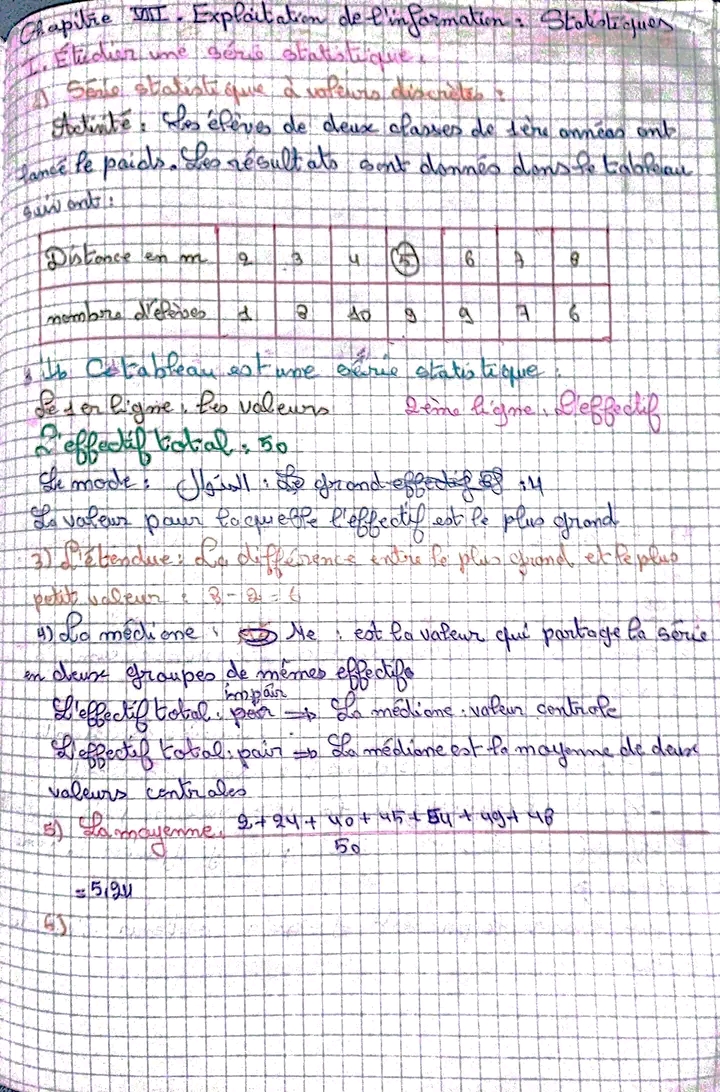 Chapitre VIII. Exploitation de l'information : Statistiques
I. Étudier une série statistique.
1) Série statistique à valeurs discrètes :
Activité : Les élèves de deux classes de 1ère années ont
lancé le poids. Les résultats sont donnés dans le tableau
suivant :
Distance en m 2 3 4 5 6 7 8
nombre d'élèves 1 8 10 9 9 7 6
1) Ce tableau est une série statistique :
Le 1er ligne : les valeurs 2ème ligne : L'effectif
L'effectif total : 50
Le mode : المنوال : Le grand effectif : 4
La valeur pour laquelle l'effectif est le plus grand
3) L'étendue : La différence entre le plus grand et le plus
petit valeur : 8 - 2 = 6
4) La médiane : Me : est la valeur qui partage la série
en deux groupes de mêmes effectifs
L'effectif total : pair impair → La médiane : valeur centrale
L'effectif total : pair → La médiane est la moyenne de deux
valeurs centrales
5) La moyenne : 2+24+40+45+54+49+48
50
= 5,24
6)